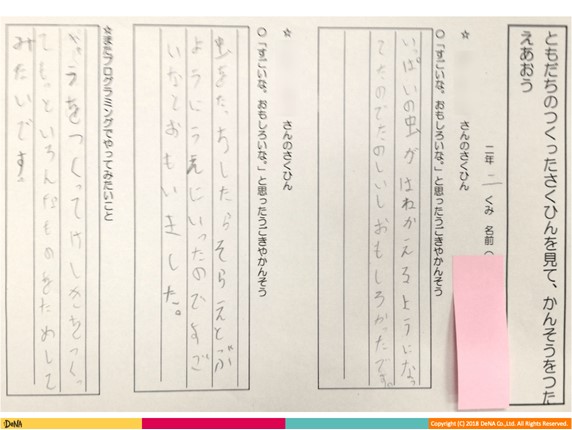 ともだちのつくったさくひんを見て、かんそうをつた
えあおう
二年 二 くみ 名前
☆ さんのさくひん
○「すごいな。おもしろいな。」と思ったうごきやかんそう
いっぱいの虫がはねかえるようになっ
てたのでたのしいしおもしろかったです。
☆ さんのさくひん
○「すごいな。おもしろいな。」と思ったうごきやかんそう
虫をたおしたらそらえとぶ
ようにうえにいったのですご
いなとおもいました。
☆またプログラミングでやってみたいこと
をつくってけしきをつくっ
てもっといろんなものをためして
みたいです。
DeNA
Copyright (C) 2018 DeNA Co.,Ltd. All Rights Reserved.